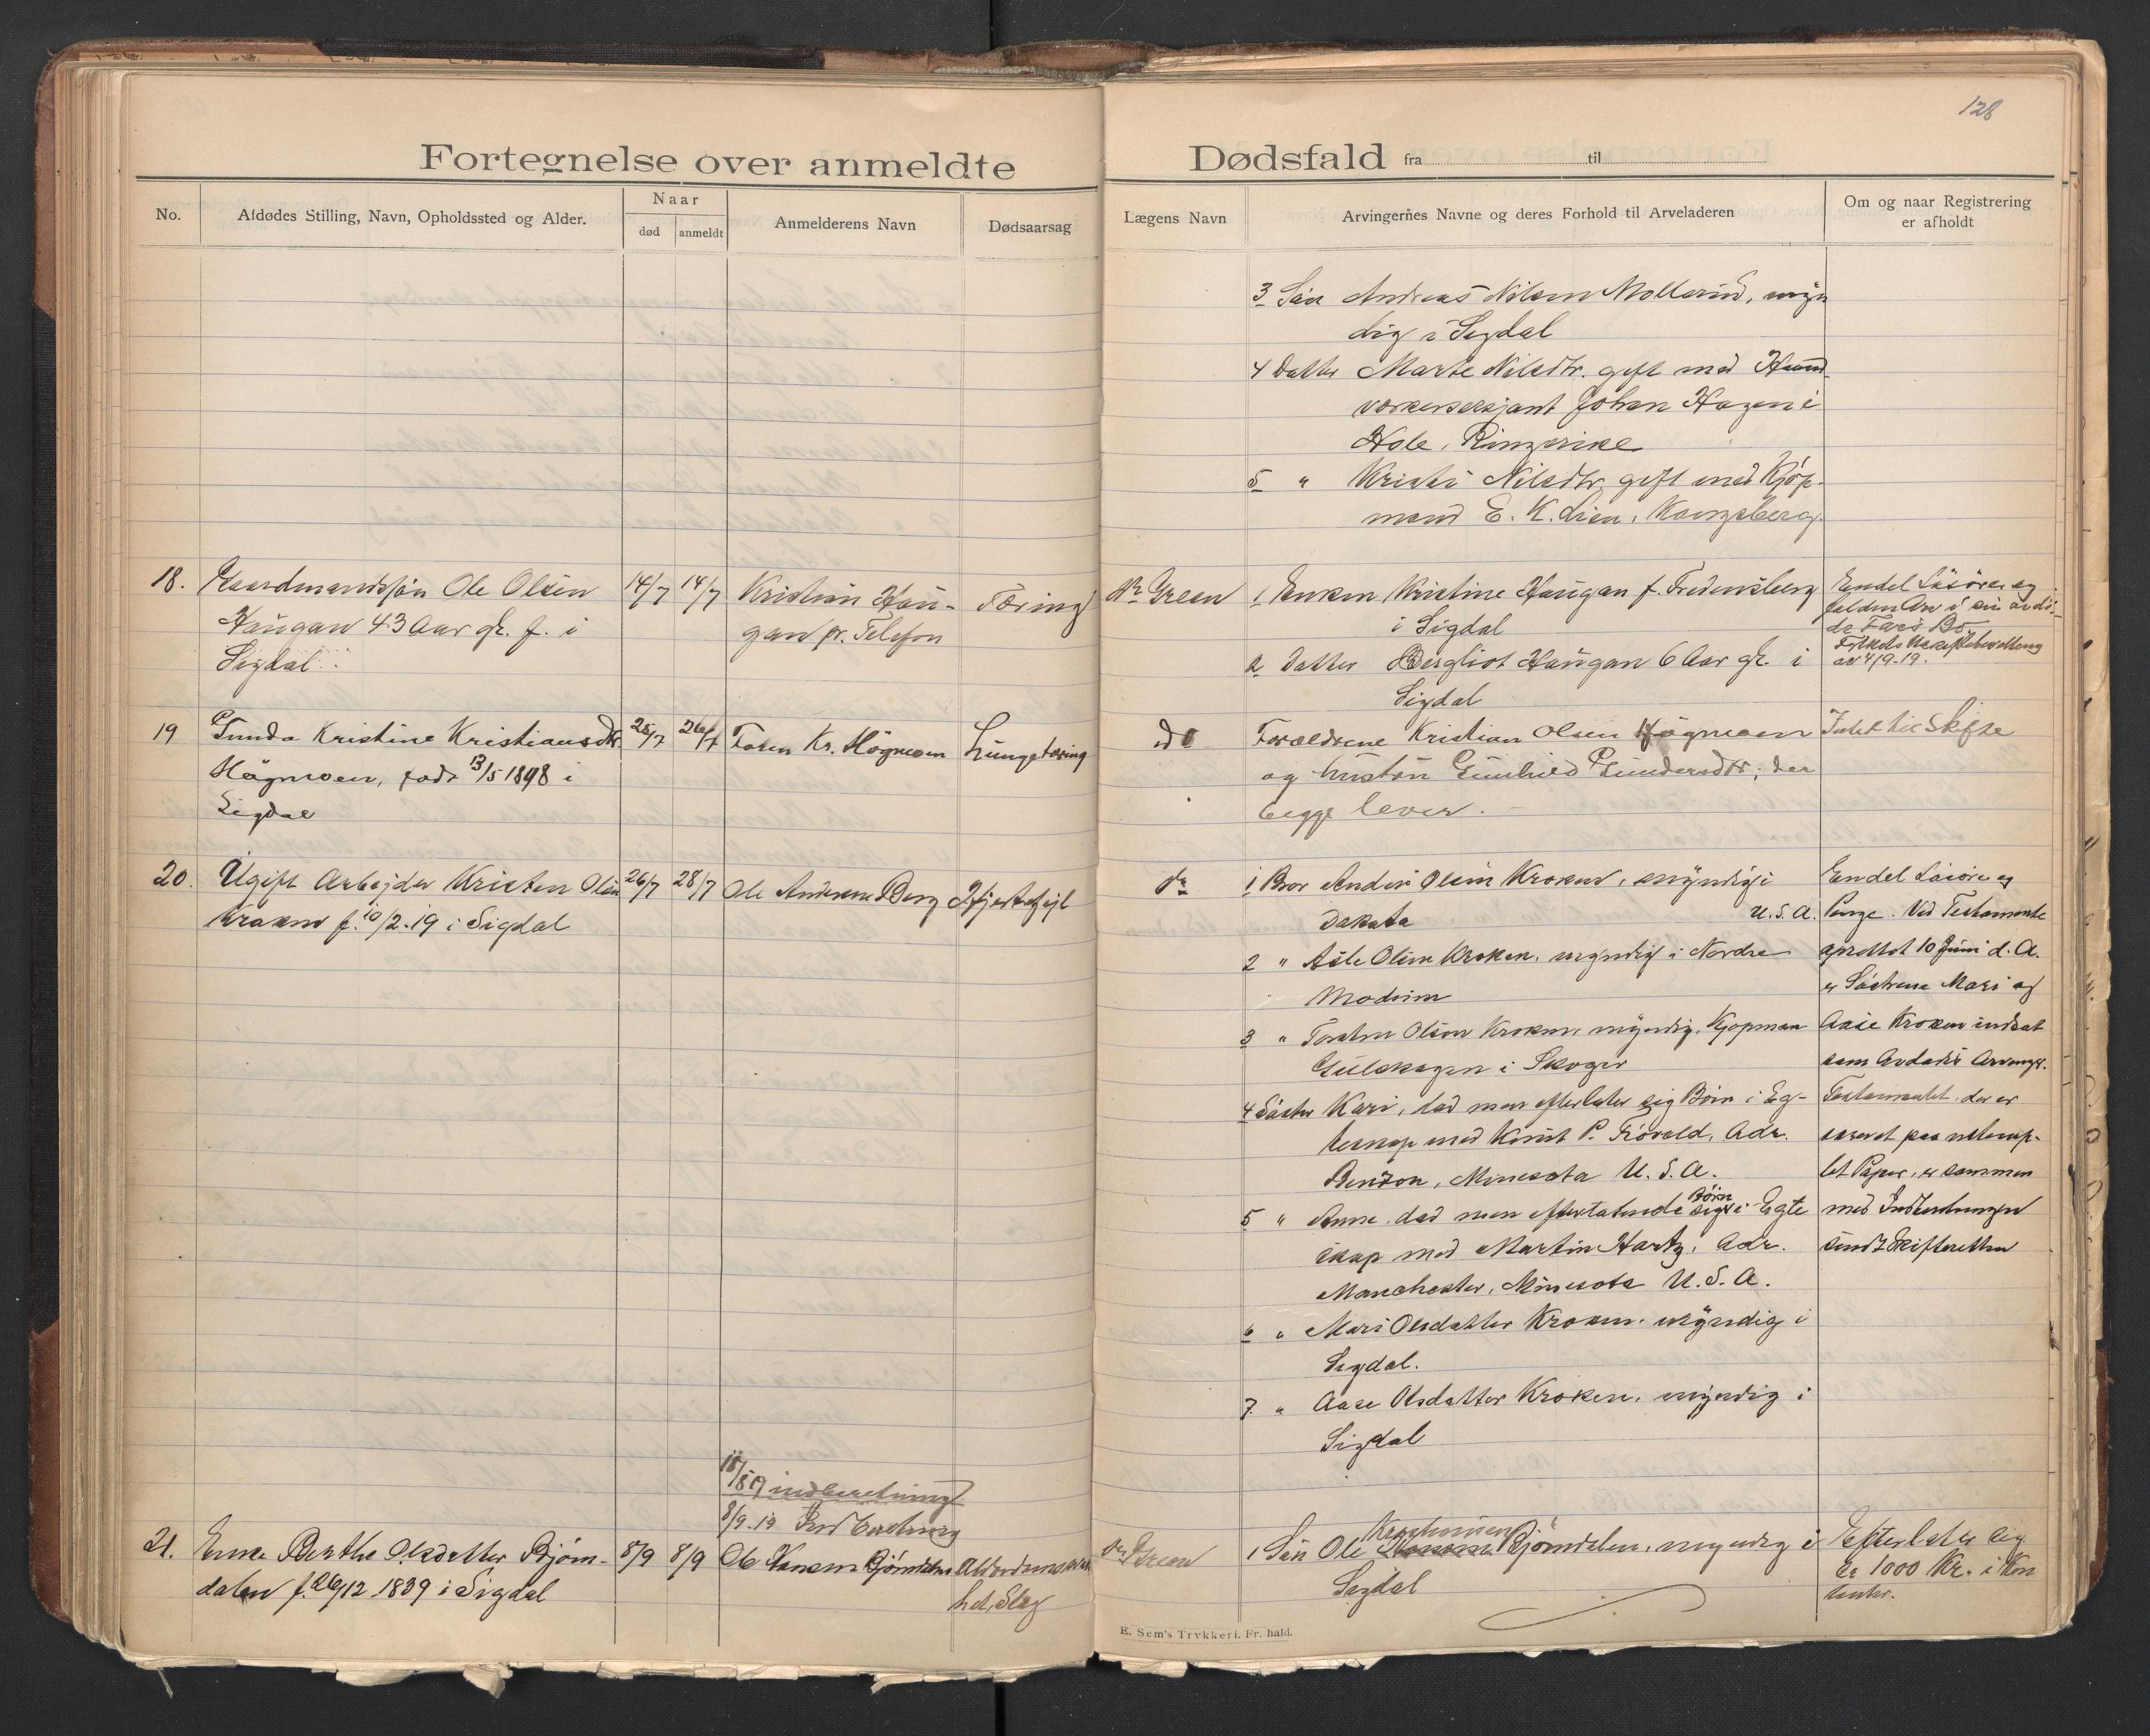 128
Fortegnelse over anmeldte Dødsfald fra til
No.
Afdødes Stilling, Navn, Opholdssted og Alder.
Naar
død
anmeldt
Anmelderens Navn
Dødsaarsag
Lægens Navn
Arvingernes Navne og deres Forhold til Arveladeren
Om og naar Registrering
er afholdt
3 Søn Andreas Nilsen Mollerud, myn
dig i Sigdal
4 Datter Marte Nilsdtr. gift med Haand-
værkersersjant Johan Hagen i
Hole, Ringerike
5 " Kristi Nilsdtr. gift med Kjøp-
mand E. K. Lien, Kongsberg.
18. Gaardmandssøn Ole Olsen
Haugan 43 Aar gl. f. i
Sigdal
14/7 14/7
Kristian Hau-
gan pr. Telefon
Tæring
Dr Green
1 Enken Kristine Haugan f. Fredensberg
i Sigdal
2 Datter Bergliot Haugan 6 Aar gl. i
Sigdal
Endel Løsøre og
falden Arv i sin avdø-
de Fars Bo.
av 4/9-19.
19 Gunda Kristine Kristiansdtr.
Høgmoen, født 13/5 1898 i
Sigdal
25/7 26/7
Faren Kr. Høgmoen
Lungetæring
do
Forældrene Kristian Olsen Høgmoen
og hustru Gunhild Gundersdtr; der
begge lever.
Intet til Skifte
20. Ugift Arbejder Kristen Olsen
Kroken f. 10/2-19 i Sigdal
26/7 28/7
Ole Andersen Berg
Hjertefejl
Dr
1 Bror Anders Olsen Kroken, myndig i
Dakota U.S.A.
2 " Asle Olsen Kroken, myndig i Nordre
Modum
3 " Torsten Olsen Kroken, myndig, Kjøpman
Gulskogen i Skoger
4 Søster Kari, død men efterlater sig Børn i Eg-
teskap med Knut P. Frøvold, Adr.
Benson, Minesota U.S.A.
5 " Anne, død men efterlatende sig Børn i Egte
skap med Martin Hartz, Adr.
Manchester, Minesota U.S.A.
6 " Mari Olsdatter Kroken, myndig i
Sigdal.
7 " Aase Olsdatter Kroken, myndig i
Sigdal
Endel Løsøre og
Penge. Ved Testamente
oprettet 10 Juni d. A.
er Søstrene Mari og
Aase Kroken indsat
som Avdødes Arvinger.
Testamentet, der er
skrevet paa ustemp-
let Papir, er sammen
med Indberetningen
sendt Skifteretten
indberetning
8/9-19 Indberetning
21. Enke Berthe Olsdatter Bjørn-
dalen f. 26/12 1839 i Sigdal
8/9 8/9
Ole Hansen Bjørndalen
Alderdomssvak-
het, Slag
Dr Green
1 Søn Ole Bjørndalen, myndig i
Sigdal
Efterlater sig
ca 1000 Kr. i Kon
tanter.
E. Sem's Trykkeri. Fr. hald.